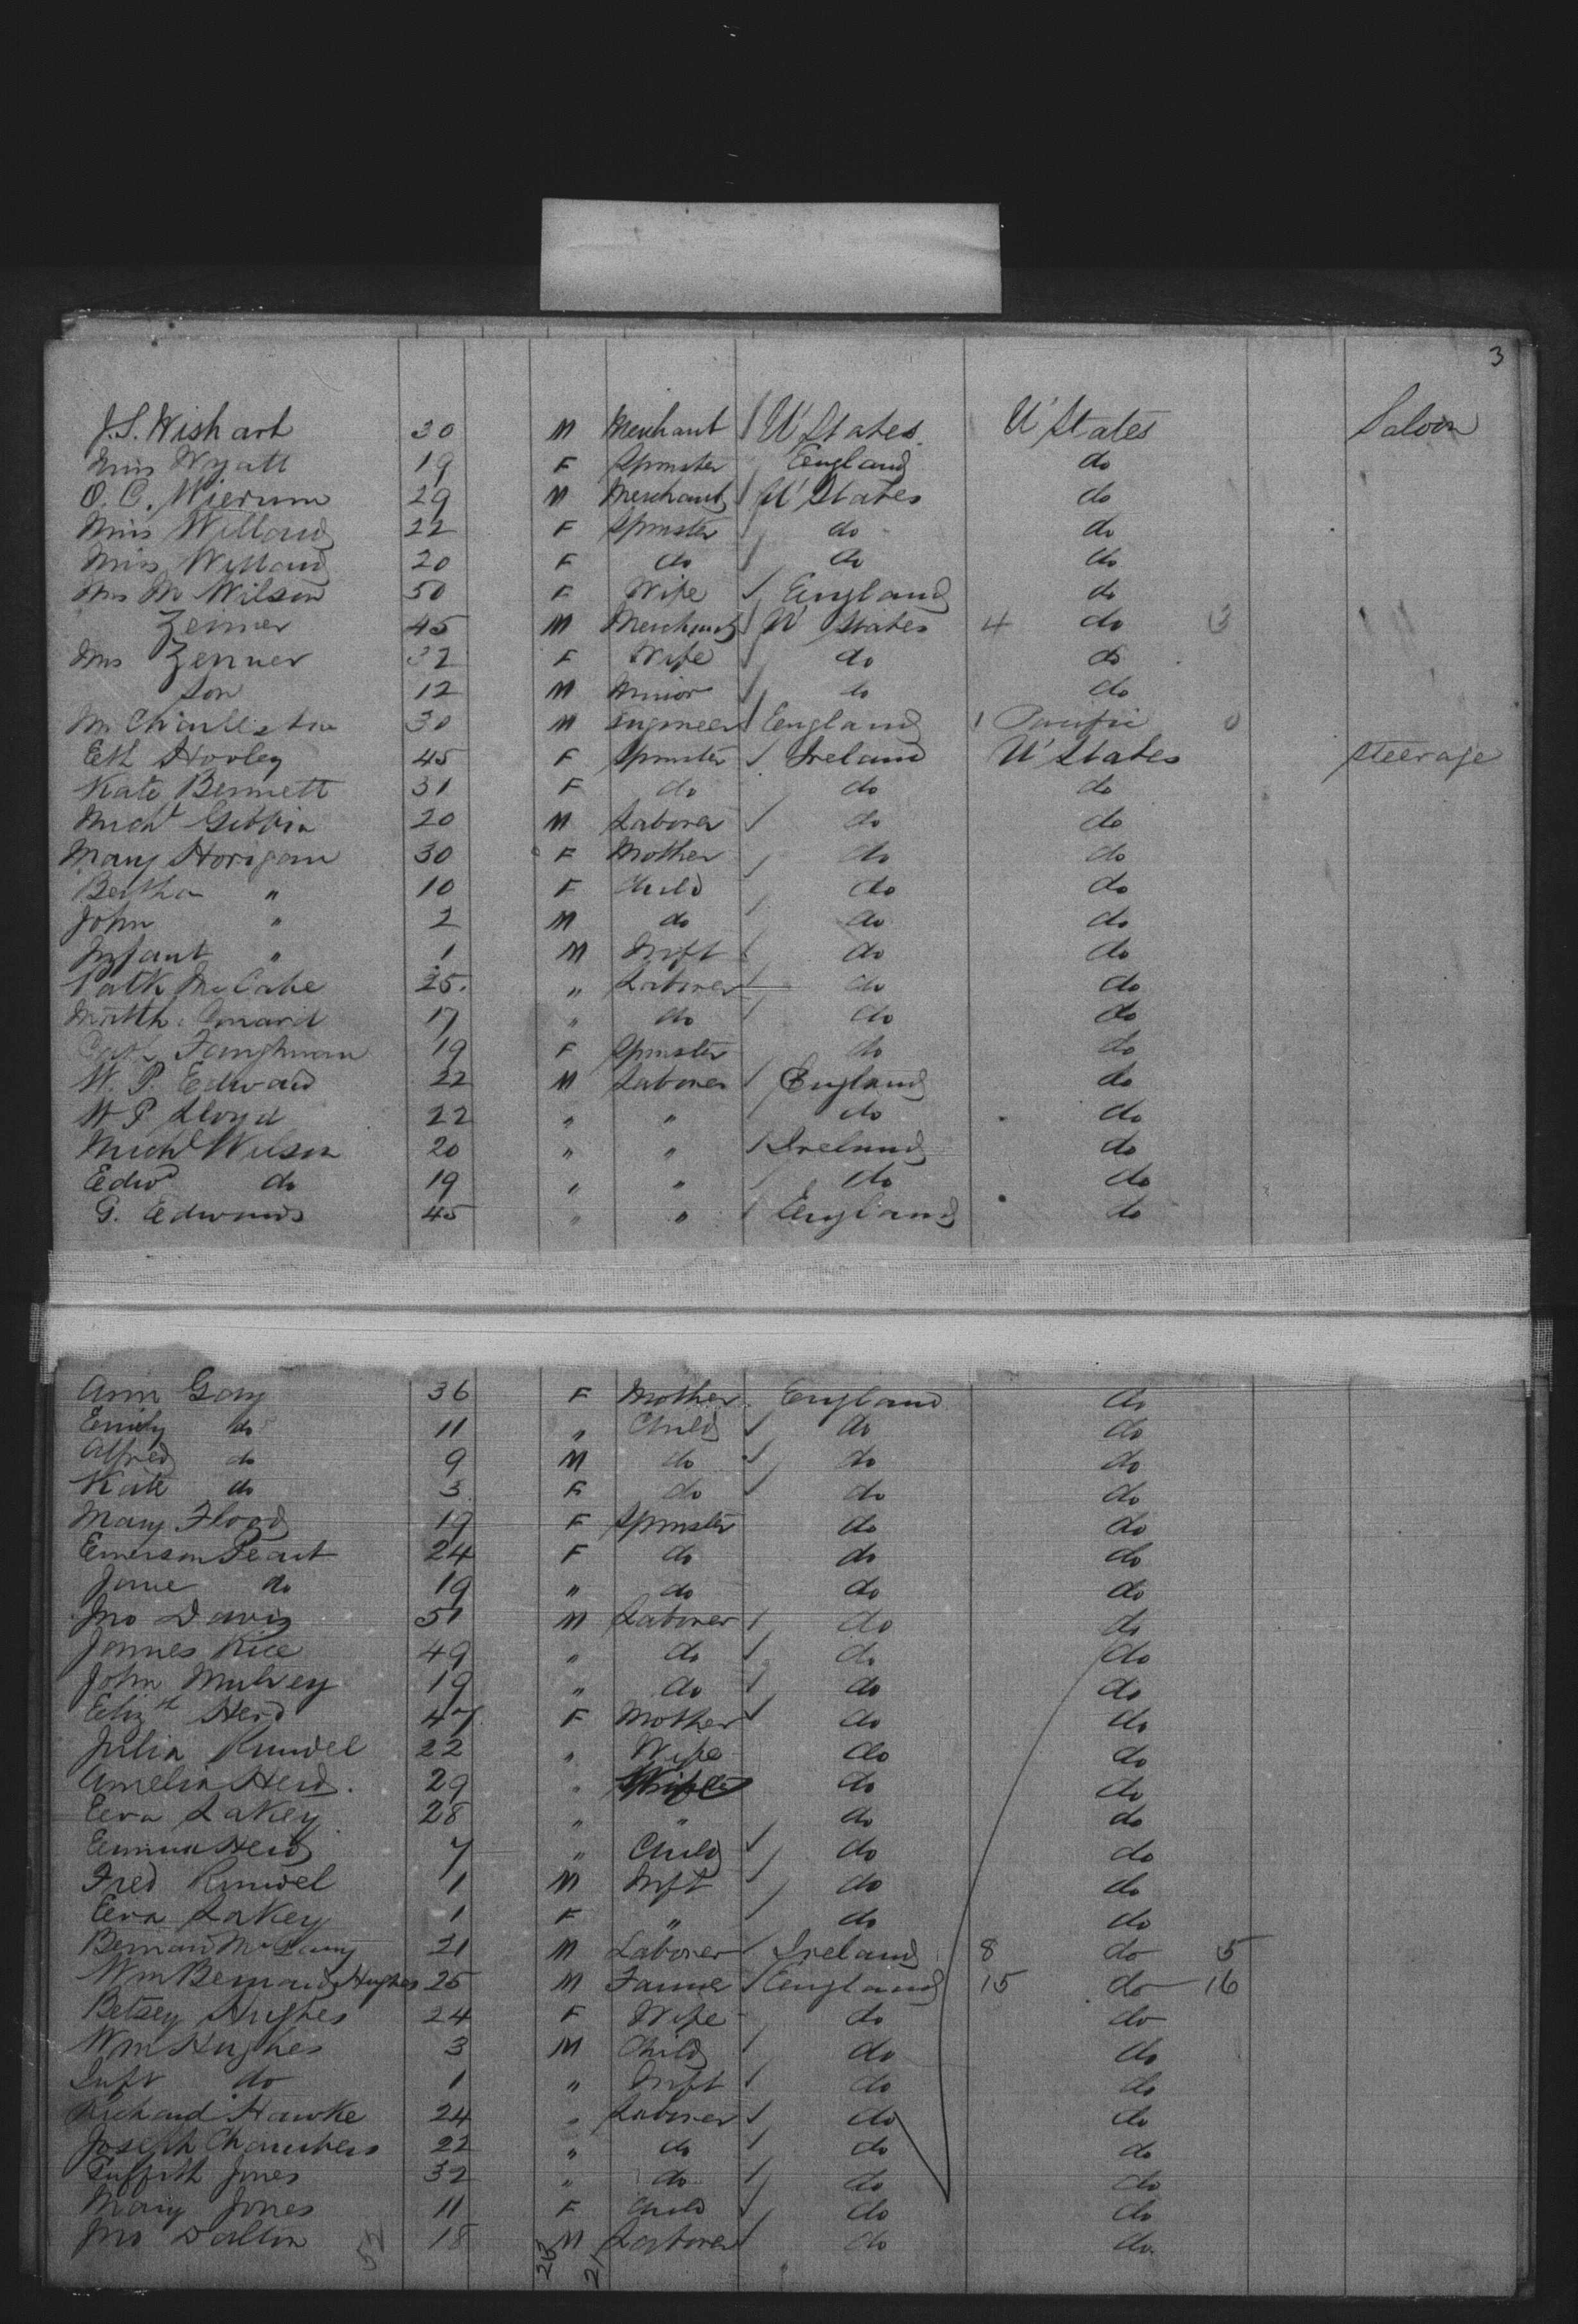 3
J. S. Wishart 30 M Merchant U' States U' States Saloon
Miss Wyatt 19 F Spinster England do
O. C. Wierum 29 M Merchant U' States do
Miss Willard 22 F Spinster do do
Miss Willard 20 F do do do
Mrs M Wilson 50 F Wife England do
Zenner 45 M Merchant U States 4 do 3
Mrs Zenner 32 F Wife do do
Son 12 M Minor do do
M Charleston 30 M Engineer England 1 Pacific 0
Eth Hooley 45 F Spinster Ireland U' States Steerage
Kate Bennett 31 F do do do
Michl Gibbin 20 M Laborer do do
Mary Horigan 30 F Mother do do
Bertha " 10 F Child do do
John " 2 M do do do
Infant " 1 M Inft do do
Patk McCabe 25 " Laborer do do
Matth. 17 " do do do
19 F Spinster do do
W. P. Edward 22 M Laborer England do
W P Lloyd 22 " " do do
Michl Wilson 20 " " Ireland do
Edwd do 19 " " do do
G. Edwards 45 " " England do
Ann Gary 36 F Mother England do
Emily do 11 " Child do do
Alfred do 9 M do do do
Kate do 3 F do do do
Mary Flood 19 F Spinster do do
Emerson Peart 24 F do do do
Jane do 19 " do do do
Jno Davis 51 M Laborer do do
James Rice 49 " do do do
John Mulvey 19 " do do do
Elizth Herd 47 F Mother do do
Julia Rundel 22 " Wife do do
Amelia Herd. 29 " do do
Eva Lakey 28 " " do do
Emma Herd 7 " Child do do
Fred Rundel 1 M Inft do do
Eva Lakey 1 F " do do
Bernard 21 M Laborer Ireland 8 do 5
Wm Bernard Hughes 25 M Farmer England 15 do 16
Betsey Hughes 24 F Wife do do
Wm Hughes 3 M Child do do
Inft do 1 " Inft do do
Richard Hawke 24 " Laborer do do
Joseph Chambers 22 " do do do
Griffith Jones 32 " do do do
Mary Jones 11 F Child do do
Jno Dalton 18 M Laborer do do
52 21